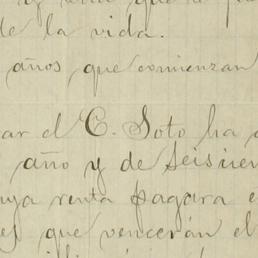 y una que a
de la vida.
años que comienzan
ar el C. Soto ha
año y de Seiscien
uya renta pagara e
es que vencerán el